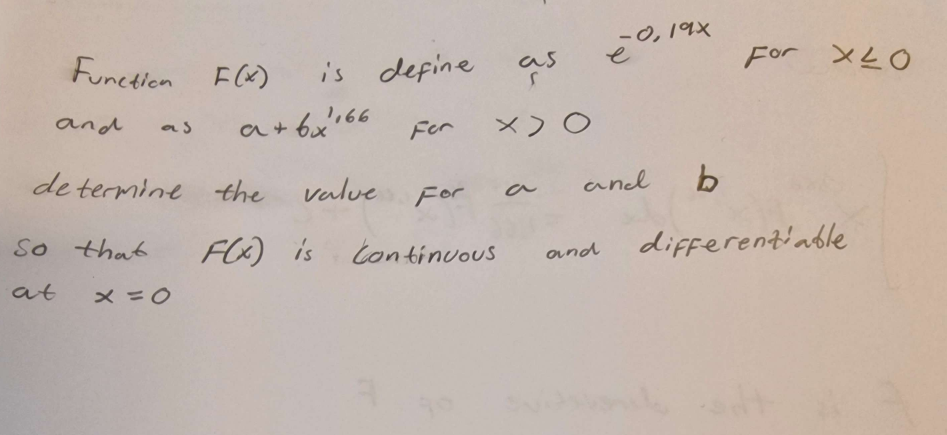 Function F(x) is define as e^-0,19x For x ≤ 0
and as a + bx^1,66 For x > 0
determine the value For a and b
so that F(x) is continuous and differentiable
at x = 0